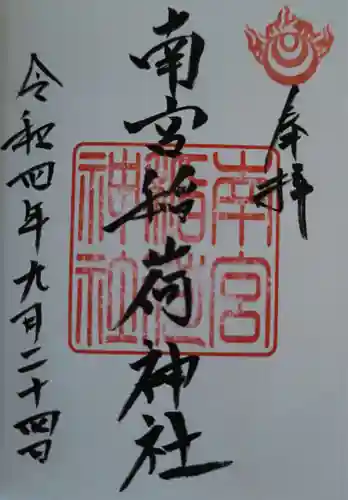 奉拝
南宮稲荷神社
南宮
稲荷
神社
令和四年九月二十四日